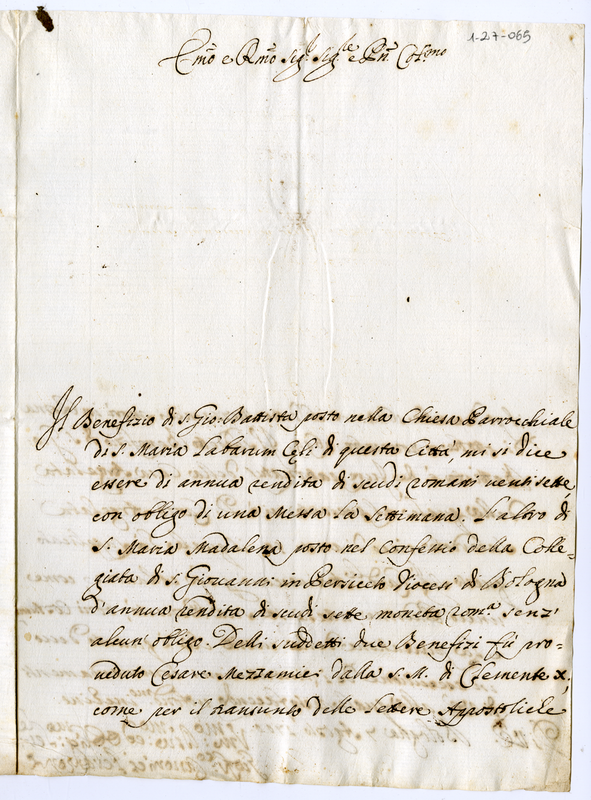 1-27-065
Emõ e Rmõ Sig.r Sig.le e Pñ Col.mo
Il Benefizio di S. Gio: Battista posto nella Chiesa Parrocchiale
di S. Maria Labarum Cęli di questa Città, mi si dice
essere di annua rendita di scudi romani ventisette,
con obligo di una Messa la Settimana. L'altro di
S. Maria Madalena posto nel Confessio della Colle=
giata di S. Giovanni in Persiceto Diocesi di Bologna
d'annua rendita di scudi sette moneta rom.a senz'
alcun'obligo. Delli suddetti due Benefizi fù pro=
veduto Cesare Mezzamici dalla S. M. di Clemente X,
come per il transunto delle Lettere Apostoliche